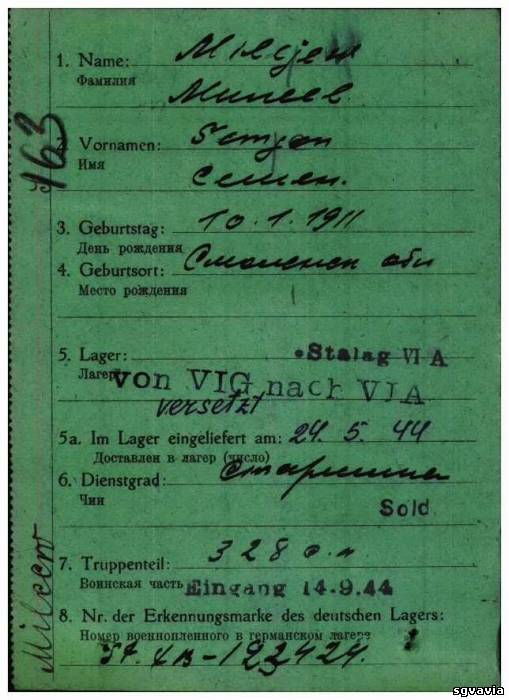 163
1. Name:
Фамилия
Минеев.
2. Vornamen: Semjon
Имя
Семен.
3. Geburtstag: 10.1.1911
День рождения
4. Geburtsort: Смоленск обл
Место рождения
5. Lager: Stalag VI A
Лагерь
von VIG nach VIA
versetzt
5a. Im Lager eingeliefert am: 24. 5. 44
Доставлен в лагер (число)
6. Dienstgrad: Старшина
Чин
Sold.
7. Truppenteil: 328
Воинская часть
Eingang 14.9.44
8. Nr. der Erkennungsmarke des deutschen Lagers:
Номер военнопленного в германском лагере
sgvavia